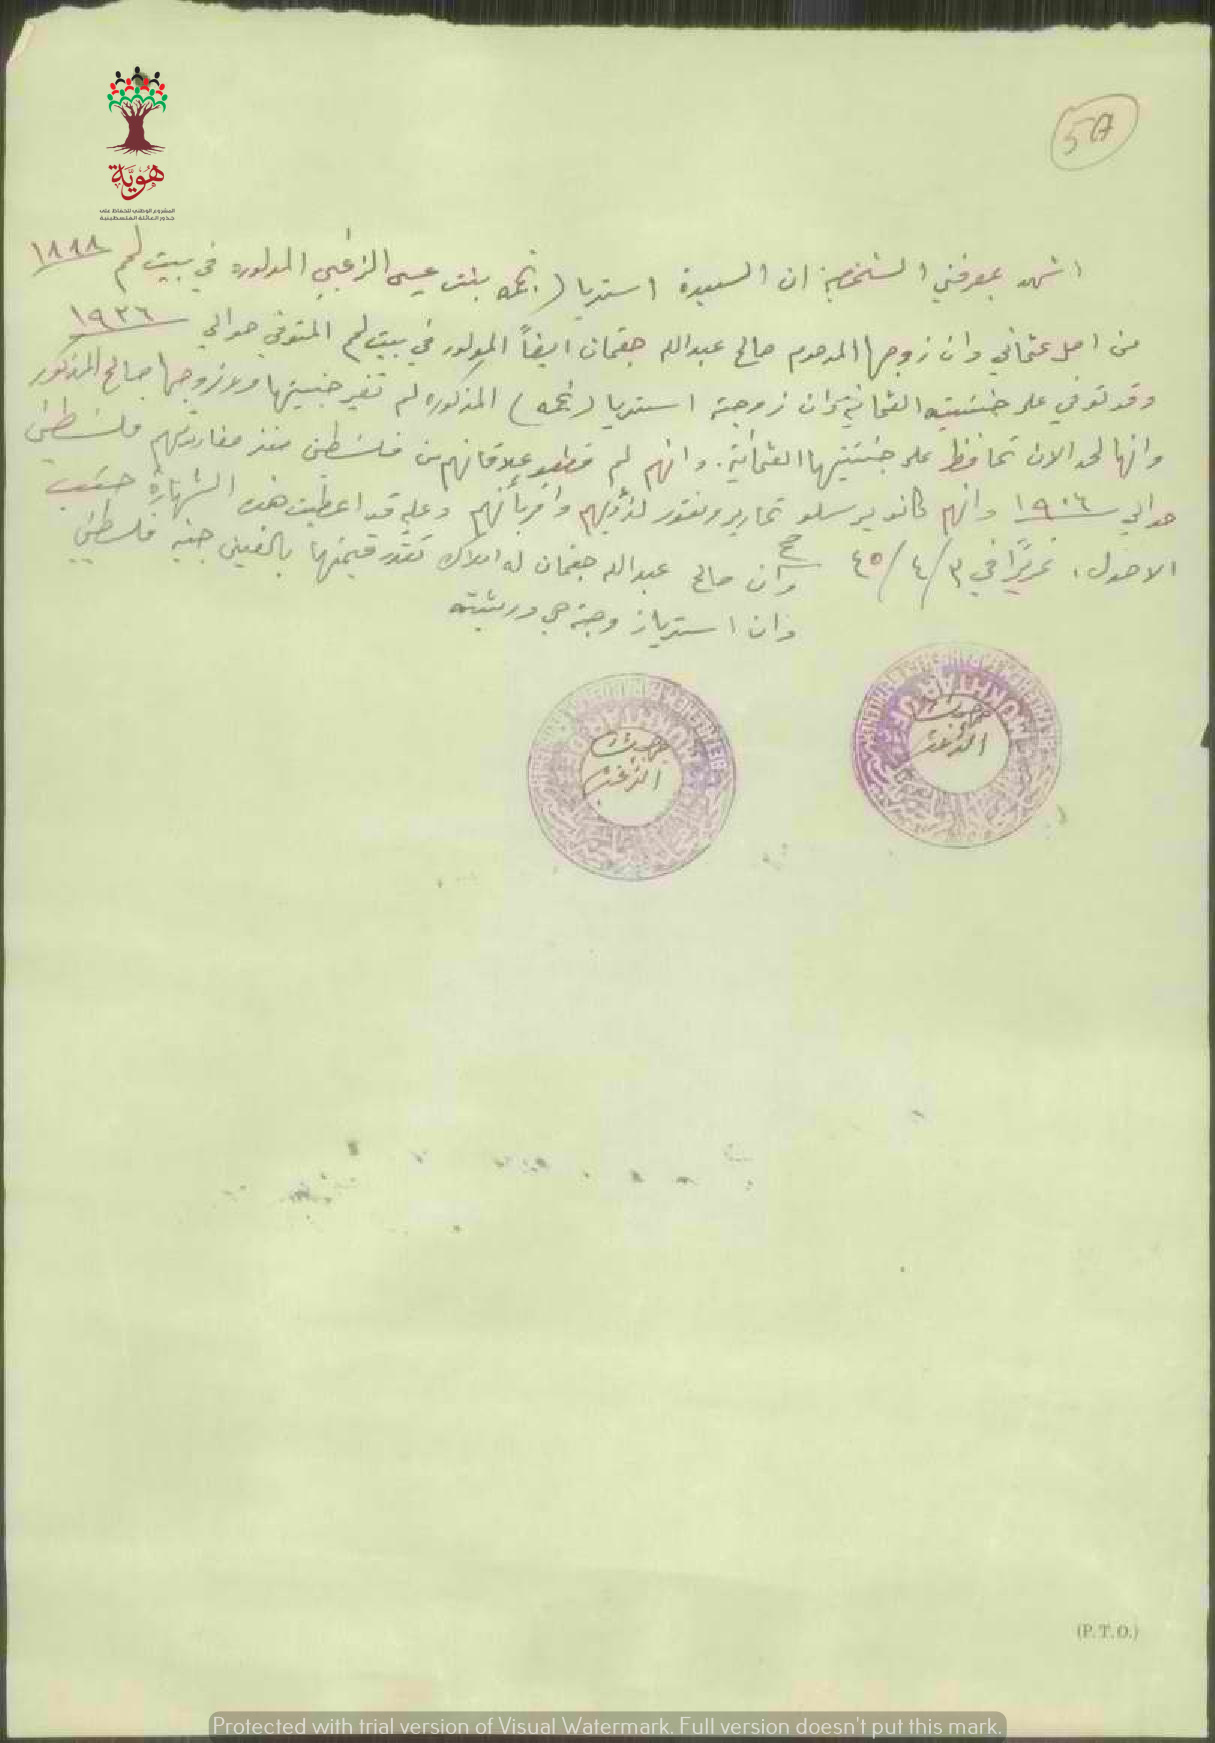 5A
هوية
المشروع الوطني للحفاظ على
جذور العائلة الفلسطينية
اشهد بمعرفتي الشخصية ان السيدة استريا (نجمه بنت عيسى الزغبي المولوده في بيت لحم ١٨٨٨
من اصل عثماني وان زوجها المرحوم صالح عبدالله جقمان ايضاً المولود في بيت لحم المتوفي حوالي ١٩٣٦
وقد توفي على جنسيته العثمانية وان زوجته استريا (نجمه) المذكوره لم تغير جنسيتها ولا زوجها صالح المذكور
وانها لحد الان تحافظ على جنسيتها العثمانية. وانهم لم قطعو علاقاتهم من فلسطين منذ مغادرتهم فلسطين
حوالي ١٩٠٦ وانهم كانو يرسلو تحارير ونقود لذويهم واقربائهم وعليه قد اعطيت هذه الشهادة حسب
الاصول. تحريرًا في ٣/٤/٤٥ صح وان صالح عبدالله جقمان له املاك تقدر قيمتها بالفين جنيه فلسطيني
وان استريا زوجته هي وريثته
MUKHTAR OF
الزغبي
MUKHTAR OF
الزغبي
(P.T.O.)
Protected with trial version of Visual Watermark. Full version doesn't put this mark.